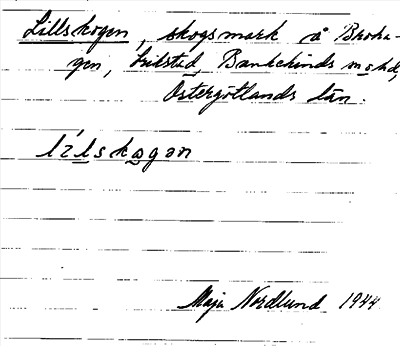 Lillskogen, skogsmark å Broha-
gen, Bankekinds
Östergötlands län.
lílskogən
Maja Nordlund 1944